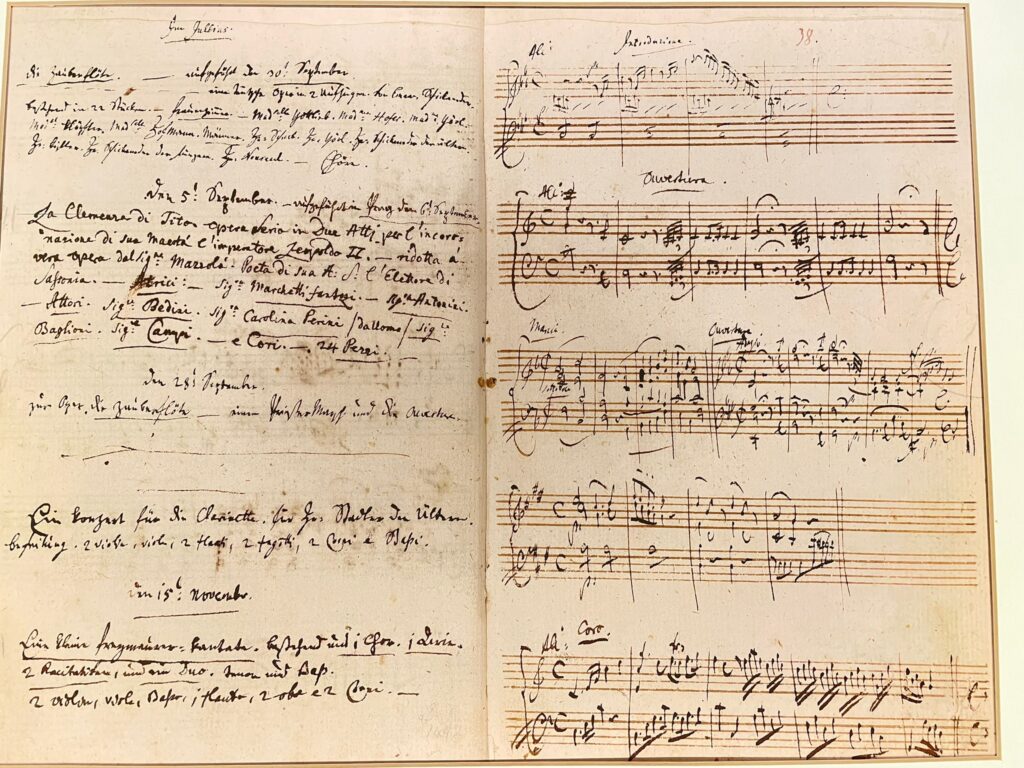 Im Jullius.
Die Zauberflöte. — aufgeführt den 30:t September.
eine teutsche Oper in 2 Aufzügen. von Eman. Schikaneder.
bestehend in 22 Stücken. — Frauenzimmer. — Mad:selle Gottlieb. Mad:me Hofer. Mad:me Görl.
Mad:me Klöpfler. Mad:selle Hofmann. Männer. Hr: Schack. Hr: Görl. Hr: Schikaneder der ältere.
Hr: Kistler. Hr: Schikaneder der Jüngere. Hr: Nouseul. — Chöre.
den 5:t September. — aufgeführt in Prag den 6:t September.
La Clemenza di Tito. opera Seria in Due Atti. per l'incoro-
nazione di sua Maestà l'imperatore Leopoldo II. — ridotta à
vera opera dal Sig:re Mazzolà. Poeta di sua A: S: l'Elettore di
Sassonia. — Attrici: — Sig:ra Marchetti fantozi. — Sig:ra Antonini.
— Attori. Sig:re Bedini. Sig:ra Carolina Perini / da uomo / Sig:re
Baglioni. Sig:re Campi. — e Cori. — 24 Pezzi.
den 28:t September.
zur Oper. die Zauberflöte — einen Priester Marsch und die Ouverture.
Ein konzert für die Clarinette. für Hr: Stadler den ältern.
begleitung. 2 violini, viole, 2 flauti, 2 fagotti, 2 Corni e Bassi.
den 15:t November.
Eine kleine freymaurer-kantate. bestehend aus 1 Chor. 1 Arie.
2 Recitativen, und ein Duo. tenor und Bass.
2 violini, viola, Basso, 1 flauto, 2 oboe e 2 Corni. —
38.
All:o Introduzione.
All:o Ouvertura
Marcia. Ouverture
Adagio
Fagi
All:o Coro